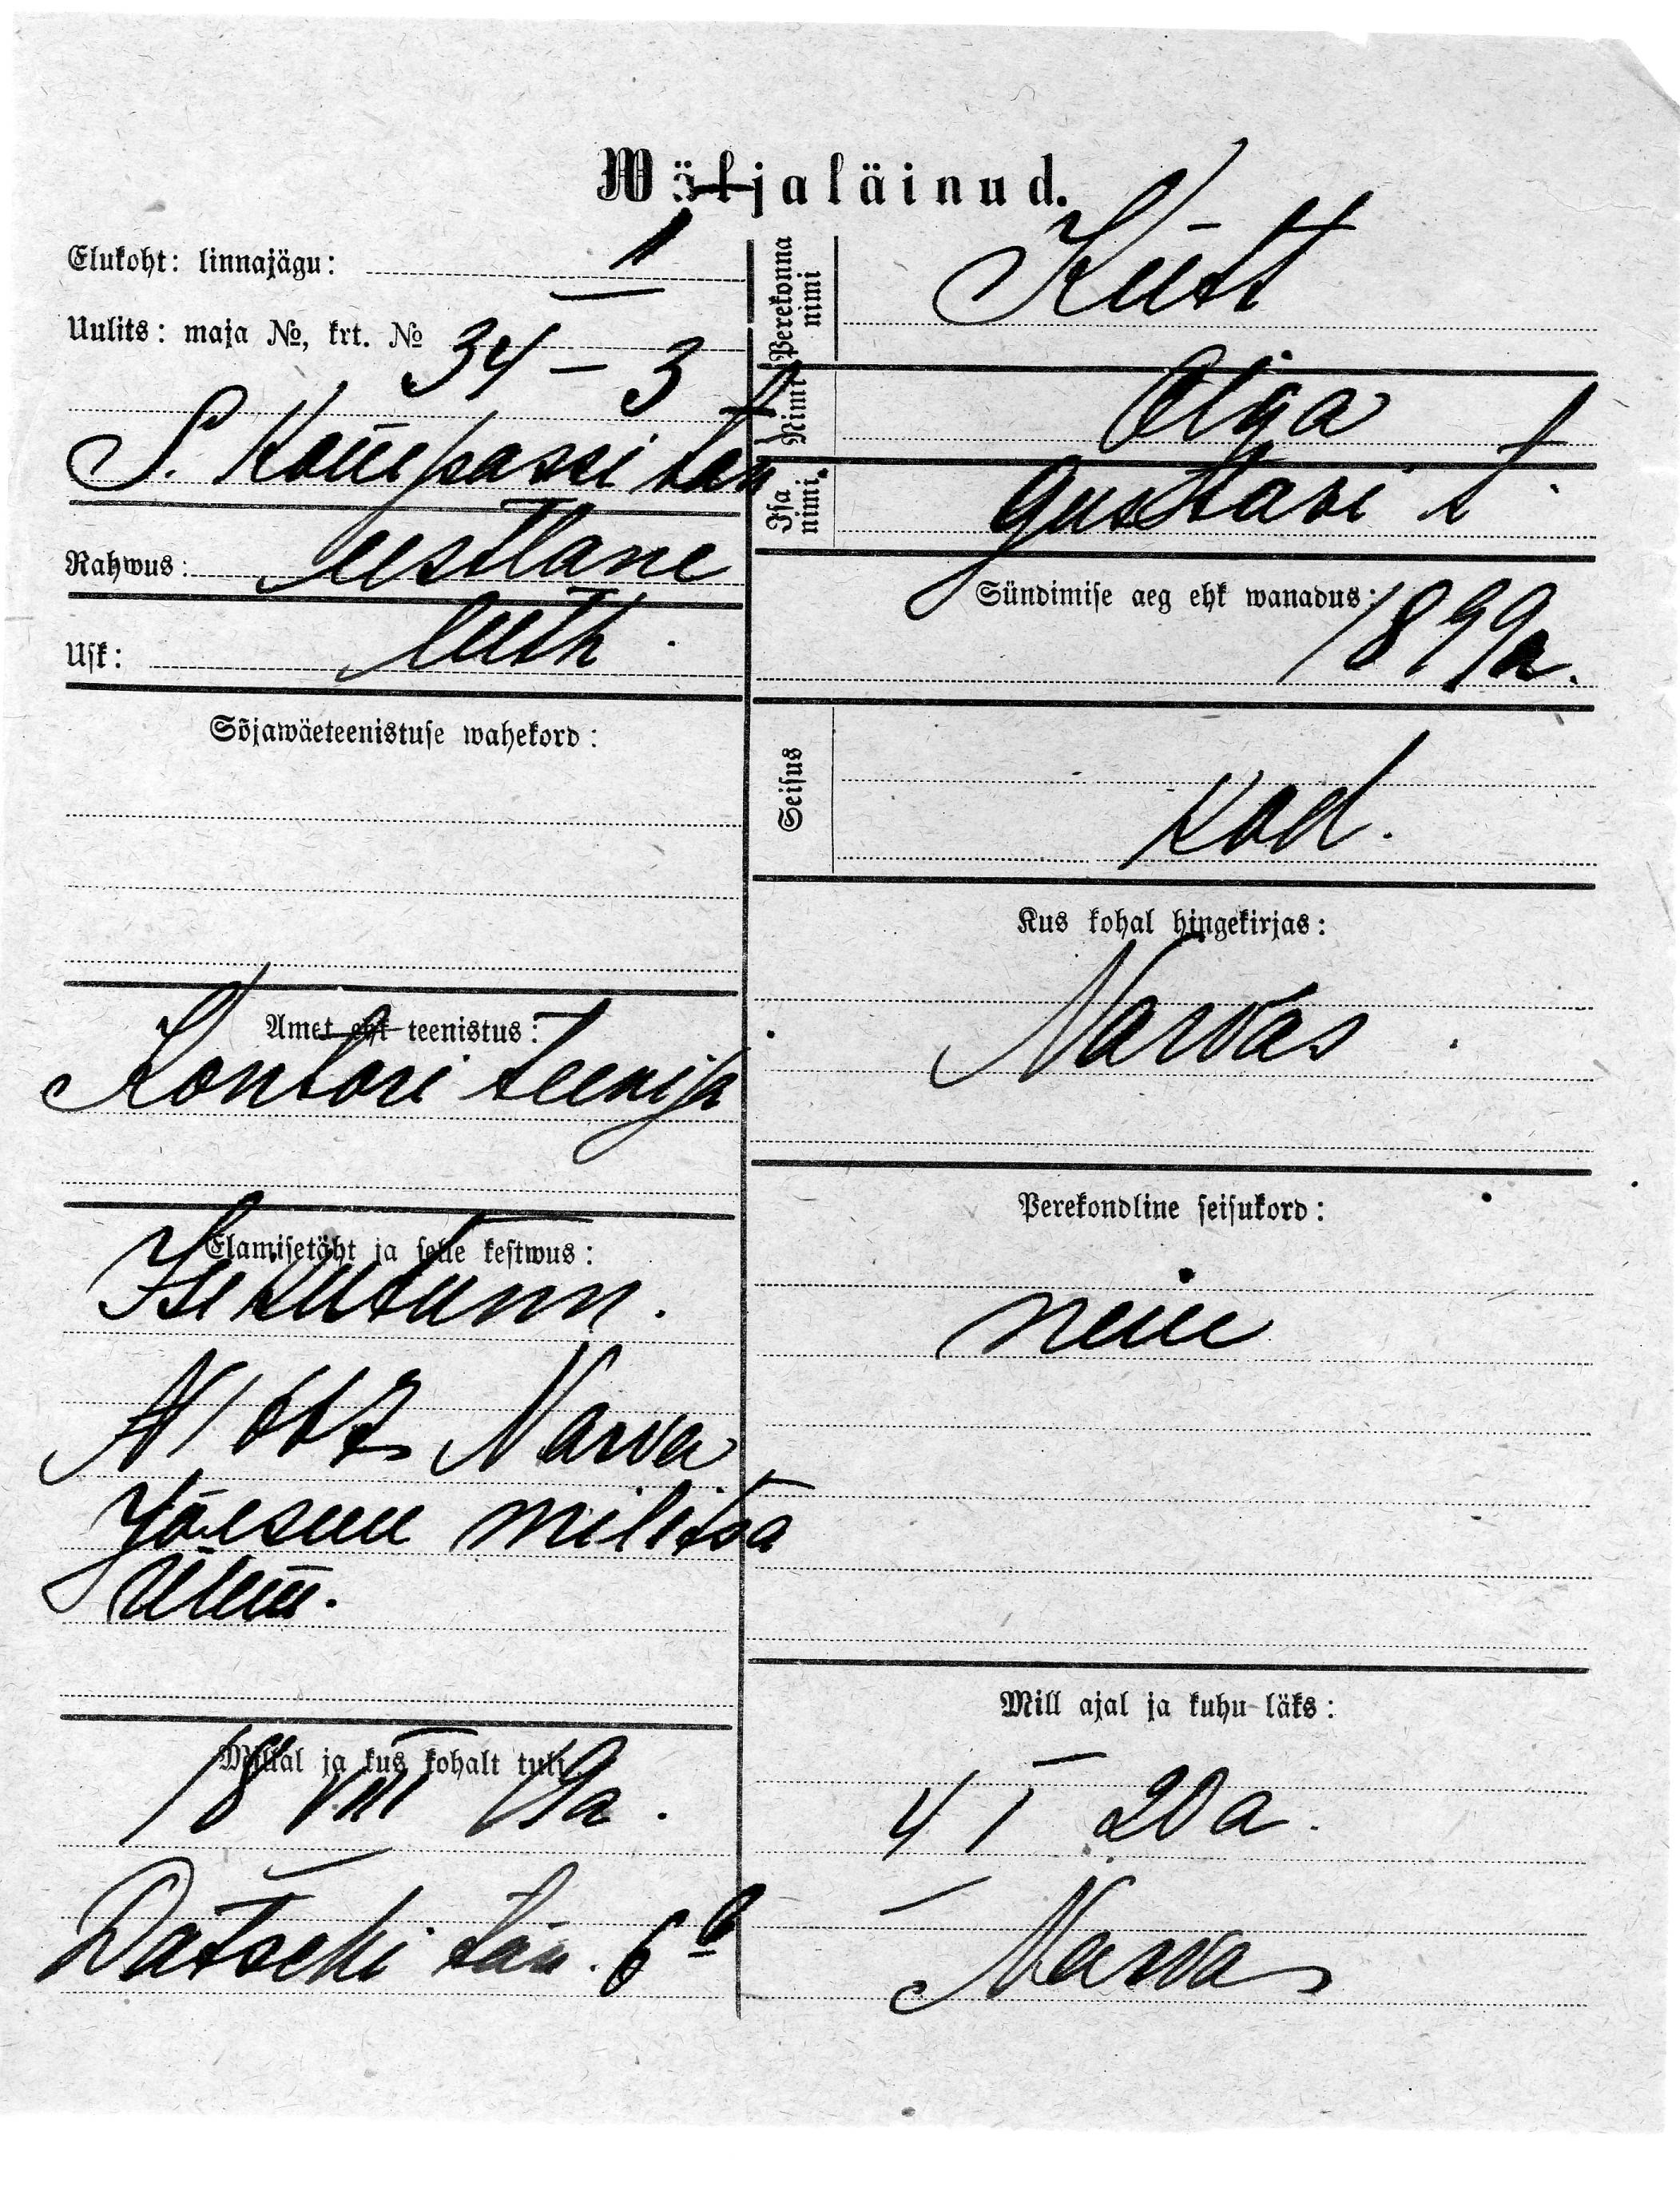 Wäljaläinud.
Elukoht: linnajägu: I
Uulits: maja №, krt. № 34 – 3
S. Kompassi tän
Rahwus: eestlane
Usk: luth.
Sõjawäeteenistuse wahekord:
Amet ehk teenistus:
Kontori teenija
Elamisetäht ja selle kestwus:
Isikutunn.
N 1667 Narva
Jõesuu militsa
Ülem.
Millal ja kus kohalt tuli:
18 VIII 19a.
Datschi tän. 6
Perekonna nimi Kütt
Nimi Olga
Isa nimi. Gustavi t.
Sündimise aeg ehk wanadus: 1899a.
Seisus
kod.
Kus kohal hingekirjas:
Narvas
Perekondline seisukord:
neiu
Mill ajal ja kuhu läks:
4 I 20 a.
Narva